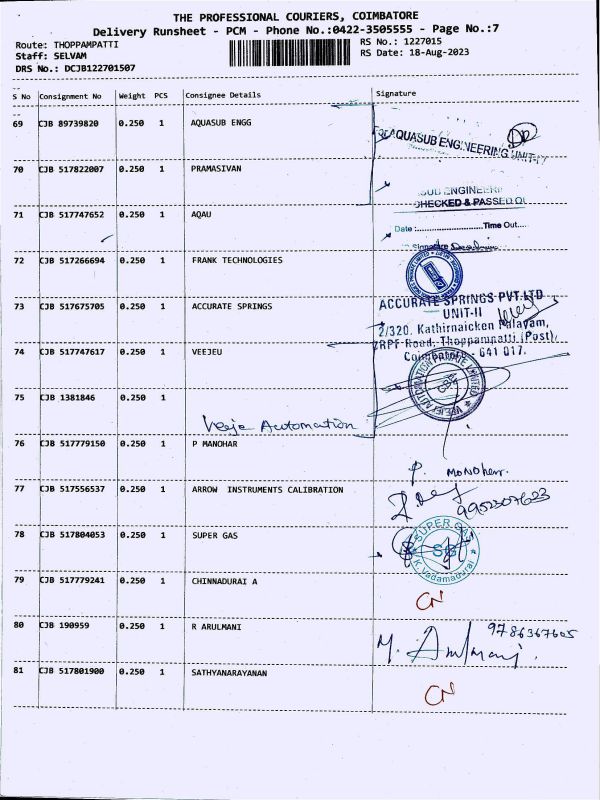 THE PROFESSIONAL COURIERS, COIMBATORE
Delivery Runsheet - PCM - Phone No.:0422-3505555 - Page No.:7
Route: THOPPAMPATTI
RS No.: 1227015
Staff: SELVAM
RS Date: 18-Aug-2023
DRS No.: DCJB122701507
S No Consignment No Weight PCS Consignee Details Signature
69 CJB 89739820 0.250 1 AQUASUB ENGG
For AQUASUB ENGINEERING UNIT-IV
70 CJB 517822007 0.250 1 PRAMASIVAN
SUB ENGINEERI
CHECKED & PASSED
71 CJB 517747652 0.250 1 AQAU
Date :....................Time Out....
Signature
72 CJB 517266694 0.250 1 FRANK TECHNOLOGIES
73 CJB 517675705 0.250 1 ACCURATE SPRINGS
ACCURATE SPRINGS PVT.LTD
UNIT-II
2/320. Kathirnaicken Palayam,
RPF Road, Thoppampatti (Post),
Coimbatore - 641 017.
74 CJB 517747617 0.250 1 VEEJEU
VEEJEY AUTOMATION PRIVATE LIMITED
CBE
75 CJB 1381846 0.250 1
Veeje Automation
76 CJB 517779150 0.250 1 P MANOHAR
P. MONOHer.
77 CJB 517556537 0.250 1 ARROW INSTRUMENTS CALIBRATION
9952307623
78 CJB 517804053 0.250 1 SUPER GAS
SUPER GAS
SG
K.Vadamadurai
79 CJB 517779241 0.250 1 CHINNADURAI A
CN
80 CJB 190959 0.250 1 R ARULMANI
9786367605
M. Arulmani.
81 CJB 517801900 0.250 1 SATHYANARAYANAN
CN